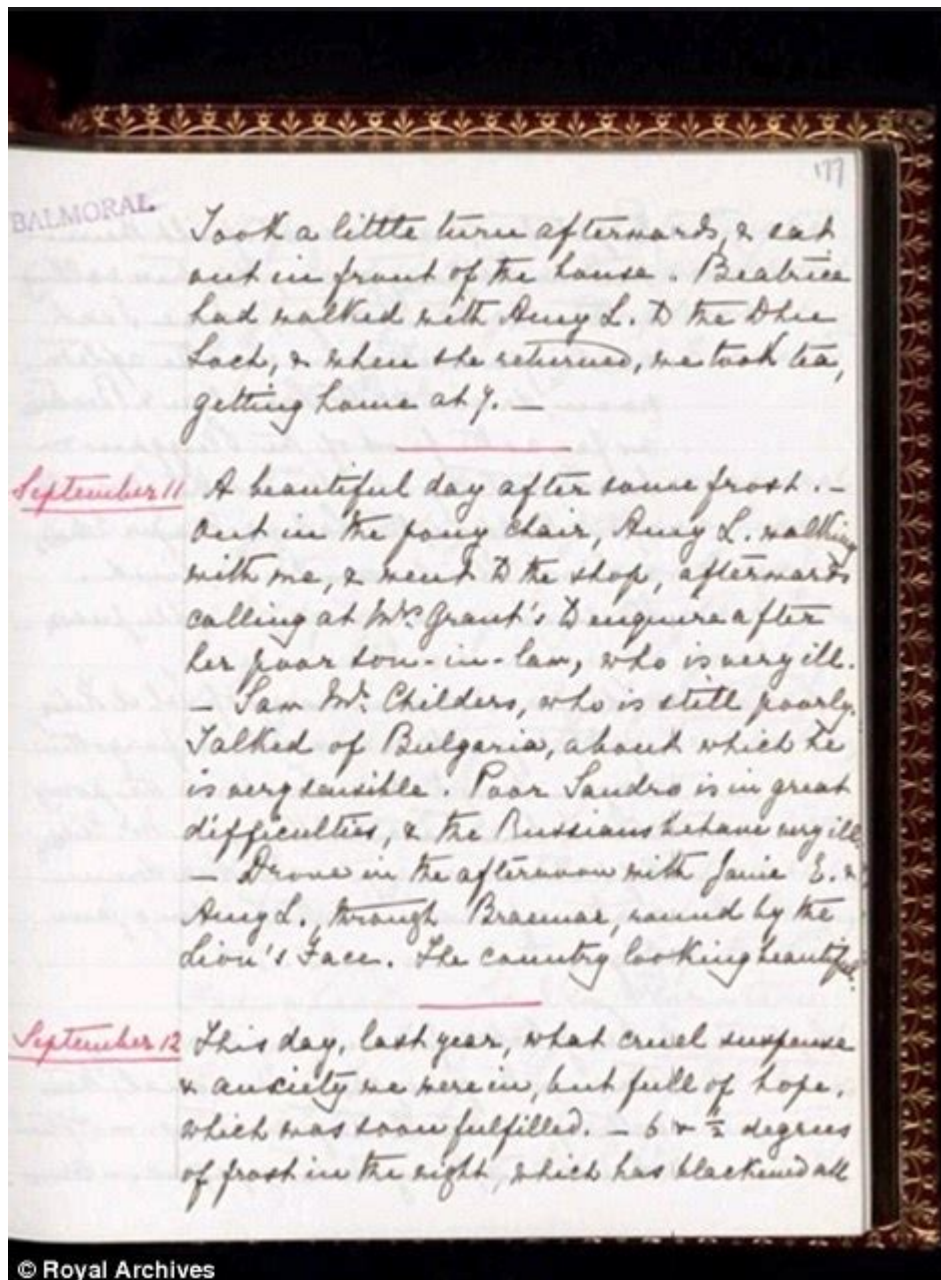 177
BALMORAL
Took a little turn afterwards, & sat
out in front of the house. Beatrice
had walked with Amy L. to the Dhu
Loch, & when she returned, we took tea,
getting home at 7. —
September 11 A beautiful day after some frost. —
Out in the pony chair, Amy L. walking
with me, & went to the shop, afterwards
calling at Mrs Grant's to enquire after
her poor son-in-law, who is very ill.
— Saw Mr Childers, who is still poorly.
Talked of Bulgaria, about which he
is very sensible. Poor Sandro is in great
difficulties, & the Russians behave very ill.
— Drove in the afternoon with Janie E. &
Amy L., through Braemar, round by the
Lion's Face. The country looking beautiful.
September 12 This day, last year, what cruel suspense
& anxiety we were in, but full of hope,
which was soon fulfilled. — 6 & ½ degrees
of frost in the night, which has blackened all
© Royal Archives